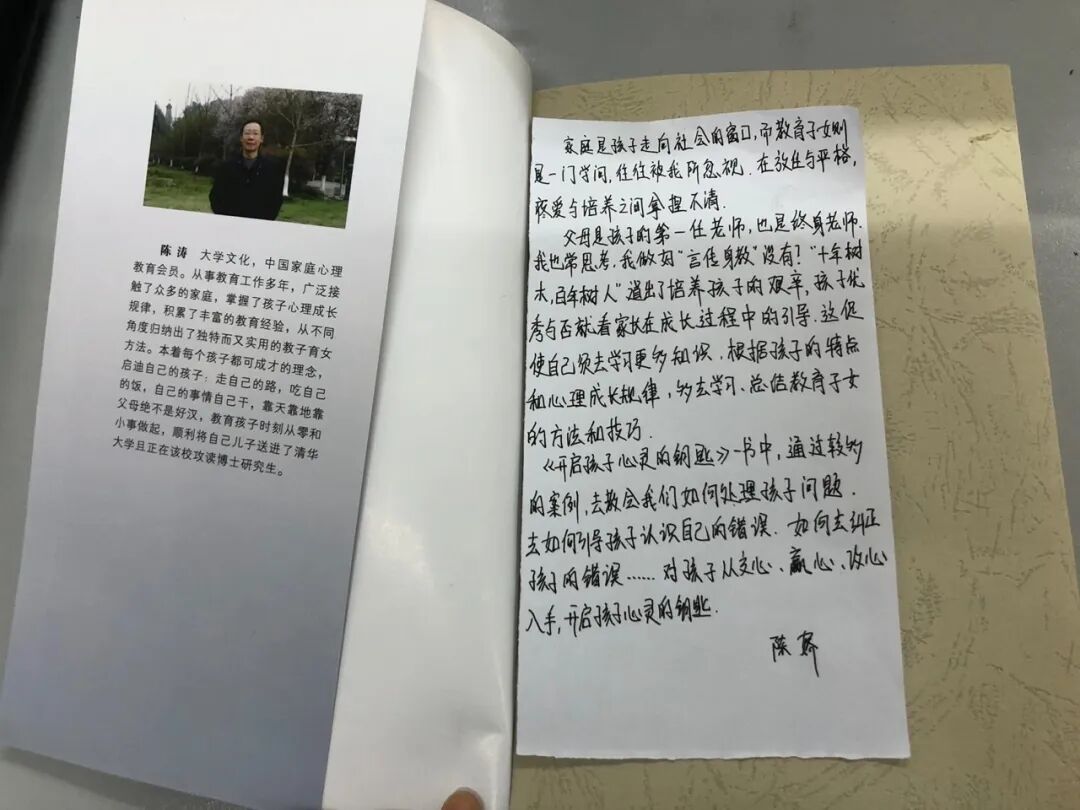 陈 涛 大学文化，中国家庭心理
教育会员。从事教育工作多年，广泛接
触了众多的家庭，掌握了孩子心理成长
规律，积累了丰富的教育经验，从不同
角度归纳出了独特而又实用的教子育女
方法。本着每个孩子都可成才的理念，
启迪自己的孩子：走自己的路，吃自己
的饭，自己的事情自己干，靠天靠地靠
父母绝不是好汉，教育孩子时刻从零和
小事做起，顺利将自己儿子送进了清华
大学且正在该校攻读博士研究生。
家庭是孩子走向社会的窗口，而教育子女则
是一门学问，往往被我所忽视．在放任与严格，
疼爱与培养之间拿捏不清．
父母是孩子的第一任老师，也是终身老师．
我也常思考．我做如"言传身教"没有？"十年树
木，百年树人"道出了培养孩子的艰辛，孩子优
秀与否就看家长在成长过程中的引导．这促
使自己须去学习更多知识．根据孩子的特点
和心理成长规律，多去学习、总结教育子女
的方法和技巧．
《开启孩子心灵的钥匙》一书中，通过较多
的案例，去教会我们如何处理孩子问题．
去如何引导孩子认识自己的错误．如何去纠正
孩子的错误……对孩子从交心、赢心、改心
入手，开启孩子心灵的钥匙．
陈